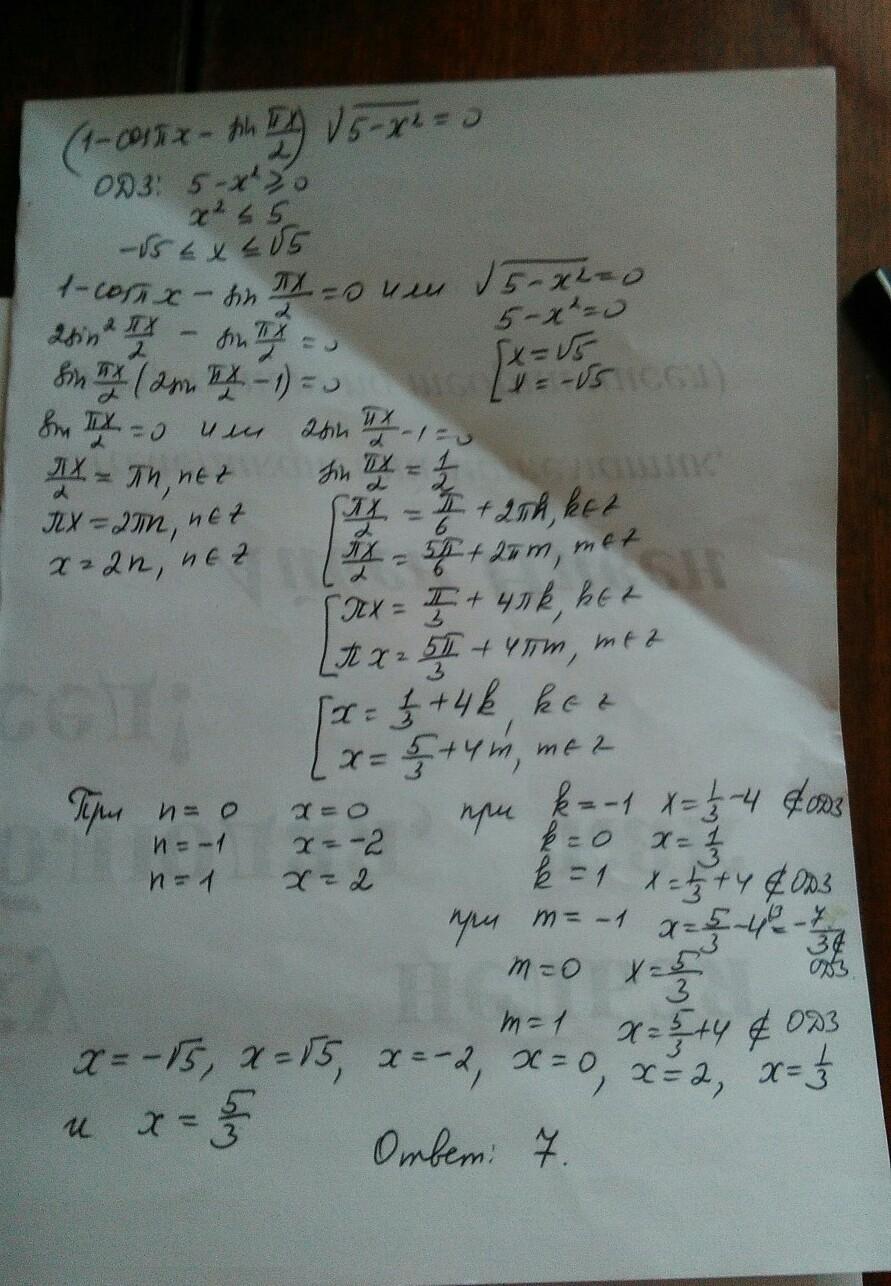 (1-cosπx - sin πx/2) √(5-x²) = 0
ОДЗ: 5-x² ≥ 0
x² ≤ 5
-√5 ≤ x ≤ √5
1-cosπx - sin πx/2 = 0 или √(5-x²) = 0
5-x² = 0
2sin² πx/2 - sin πx/2 = 0
[x = √5
x = -√5
sin πx/2 (2sin πx/2 - 1) = 0
sin πx/2 = 0 или 2sin πx/2 - 1 = 0
πx/2 = πn, n∈z
sin πx/2 = 1/2
πx = 2πn, n∈z
[πx/2 = π/6 + 2πk, k∈z
x = 2n, n∈z
πx/2 = 5π/6 + 2πm, m∈z
[πx = π/3 + 4πk, k∈z
πx = 5π/3 + 4πm, m∈z
[x = 1/3 + 4k, k∈z
x = 5/3 + 4m, m∈z
При n = 0 x = 0 при k = -1 x = 1/3 - 4 ∉ ОДЗ
n = -1 x = -2 k = 0 x = 1/3
n = 1 x = 2 k = 1 x = 1/3 + 4 ∉ ОДЗ
при m = -1 x = 5/3 - 4 = -7/3 ∉ ОДЗ
m = 0 x = 5/3
m = 1 x = 5/3 + 4 ∉ ОДЗ
x = -√5, x = √5, x = -2, x = 0, x = 2, x = 1/3
и x = 5/3
Ответ: 7.